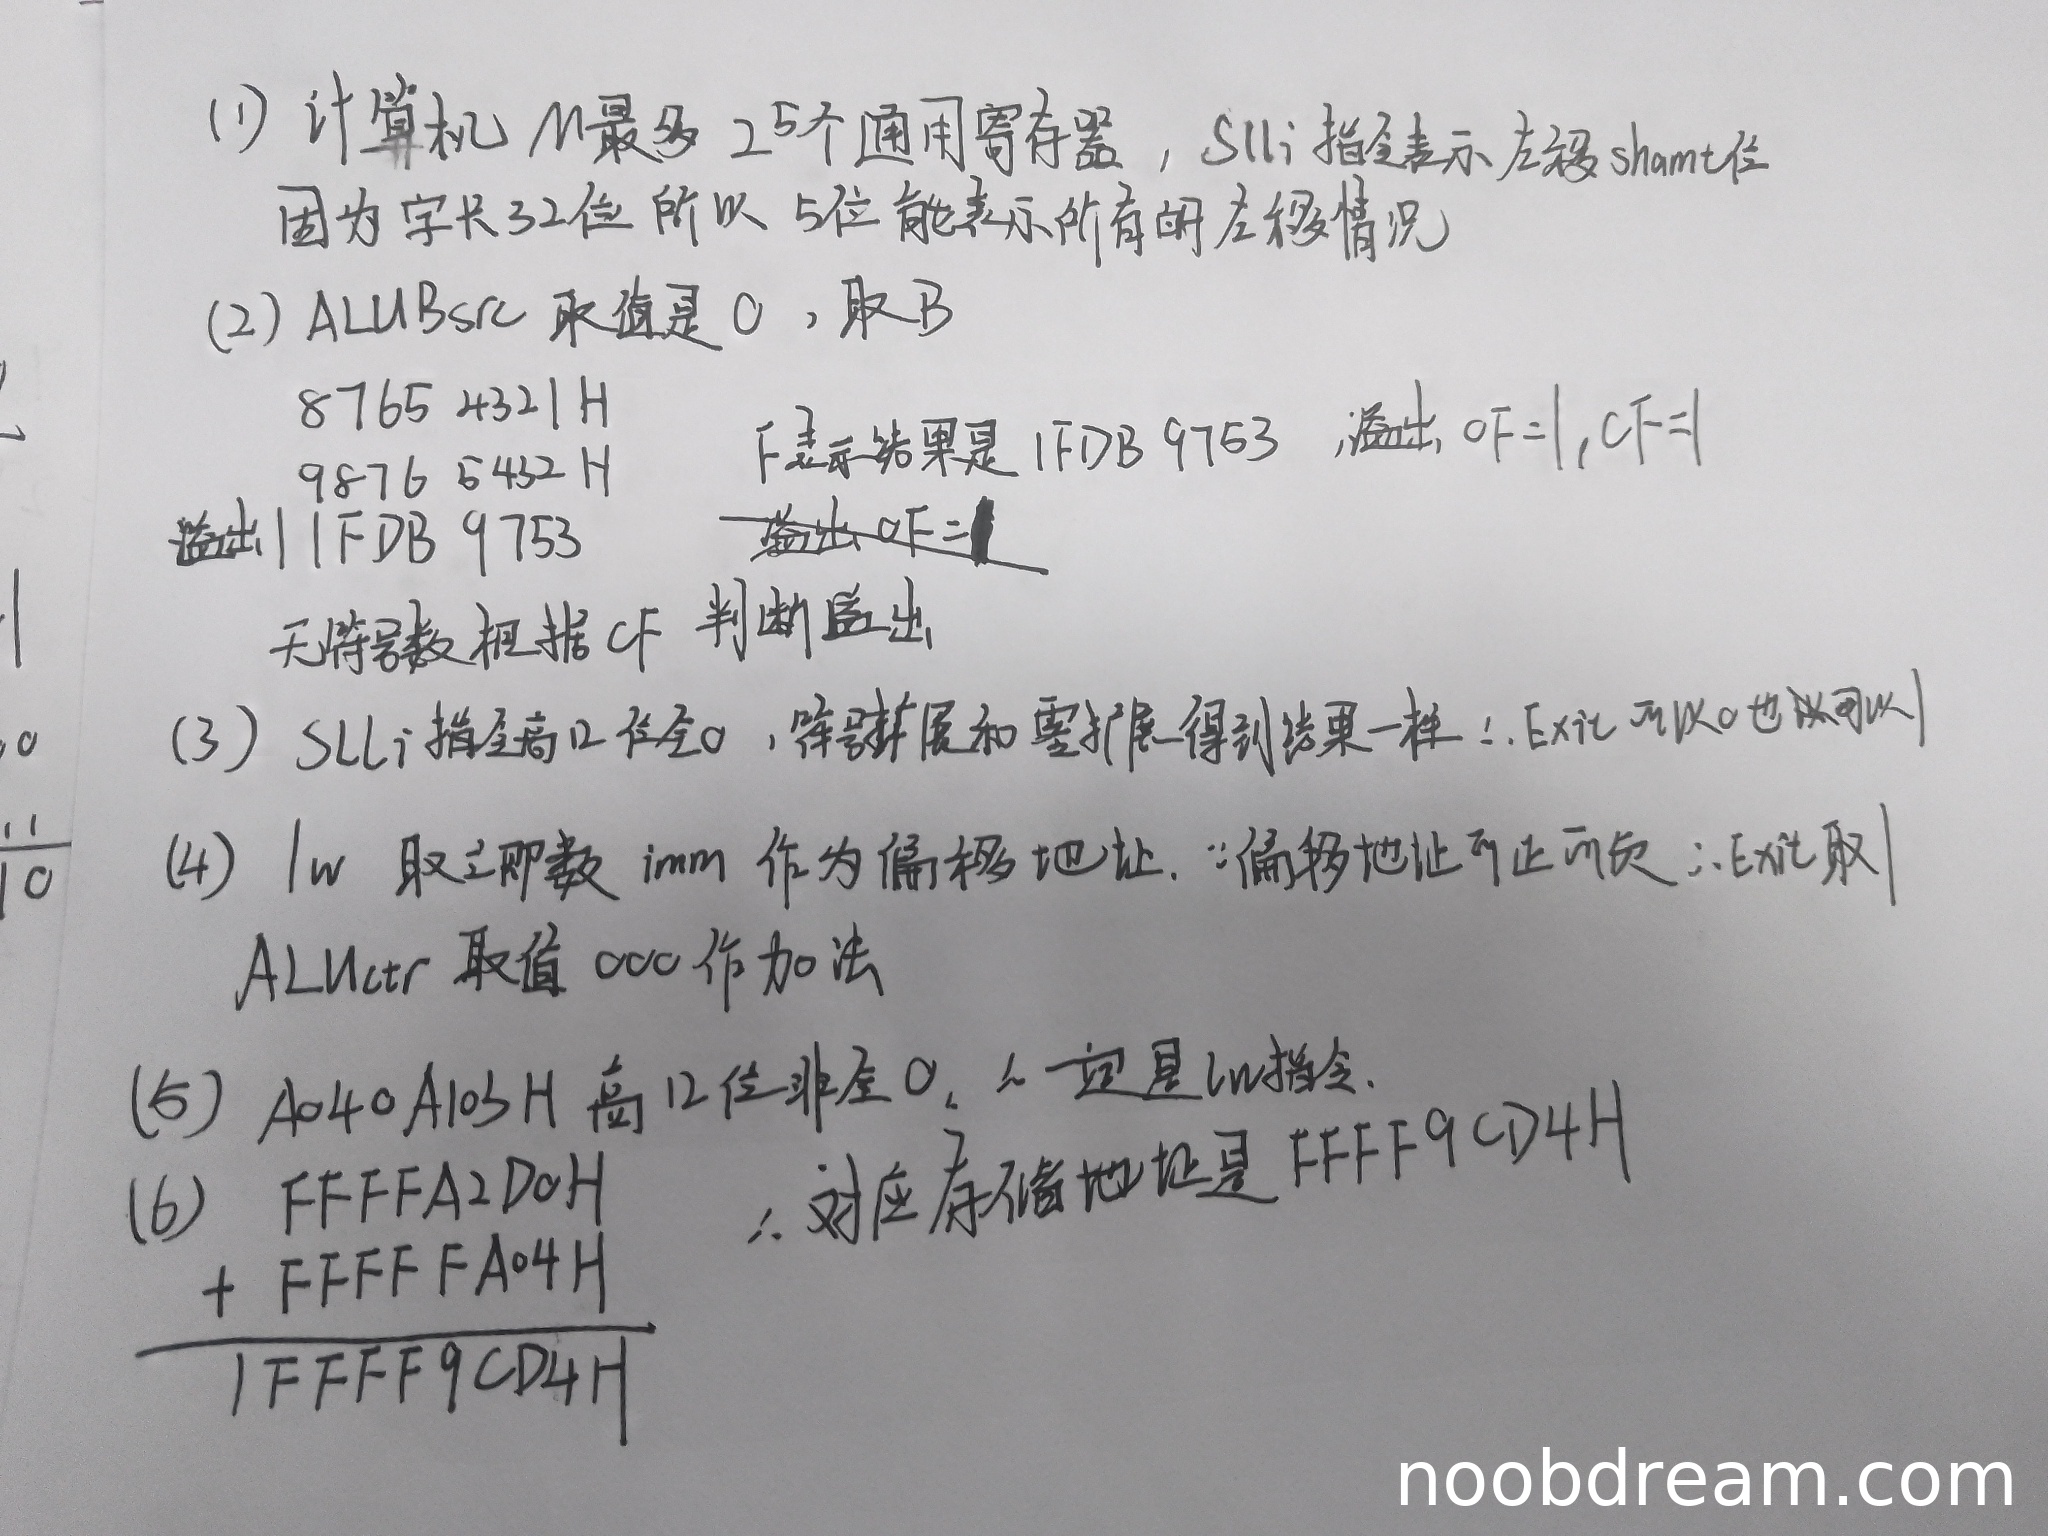 (1) 计算机M最多2⁵个通用寄存器，Slli指令表示左移shamt位
因为字长32位所以5位能表示所有的左移情况
(2) ALUBsrc取值是0，取B
8765 4321H
9876 5432H
溢出1 1FDB 9753
F表示结果是1FDB 9753，溢出OF=1，CF=1
溢出OF=1
无符号数根据CF判断溢出
(3) SLLi指令高12位全0，符号扩展和零扩展得到结果一样∴Exit可以0也可以1
(4) lw 取立即数imm作为偏移地址. ∵偏移地址可正可负∴Exit取1
ALUctr取值000作加法
(5) A040A103H高12位非全0，∴一定是lw指令.
(6) FFFFA2D0H
+ FFFFFA04H
1FFFF9CD4H
∴对应存储地址是FFFF9CD4H
10
noobdream.com